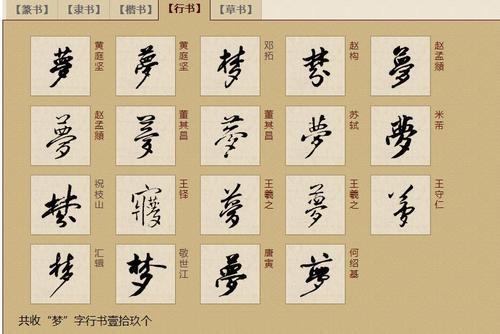 【篆书】 【隶书】 【楷书】 【行书】 【草书】
夢 黄庭坚 夢 黄庭坚 梦 邓拓 梦 赵构 夢 赵孟頫
夢 赵孟頫 夢 董其昌 夢 董其昌 夢 苏轼 夢 米芾
梦 祝枝山 王铎 夢 王羲之 夢 王羲之 王守仁
梦 汇辑 梦 敬世江 夢 唐寅 夢 何绍基
共收“梦”字行书壹拾玖个